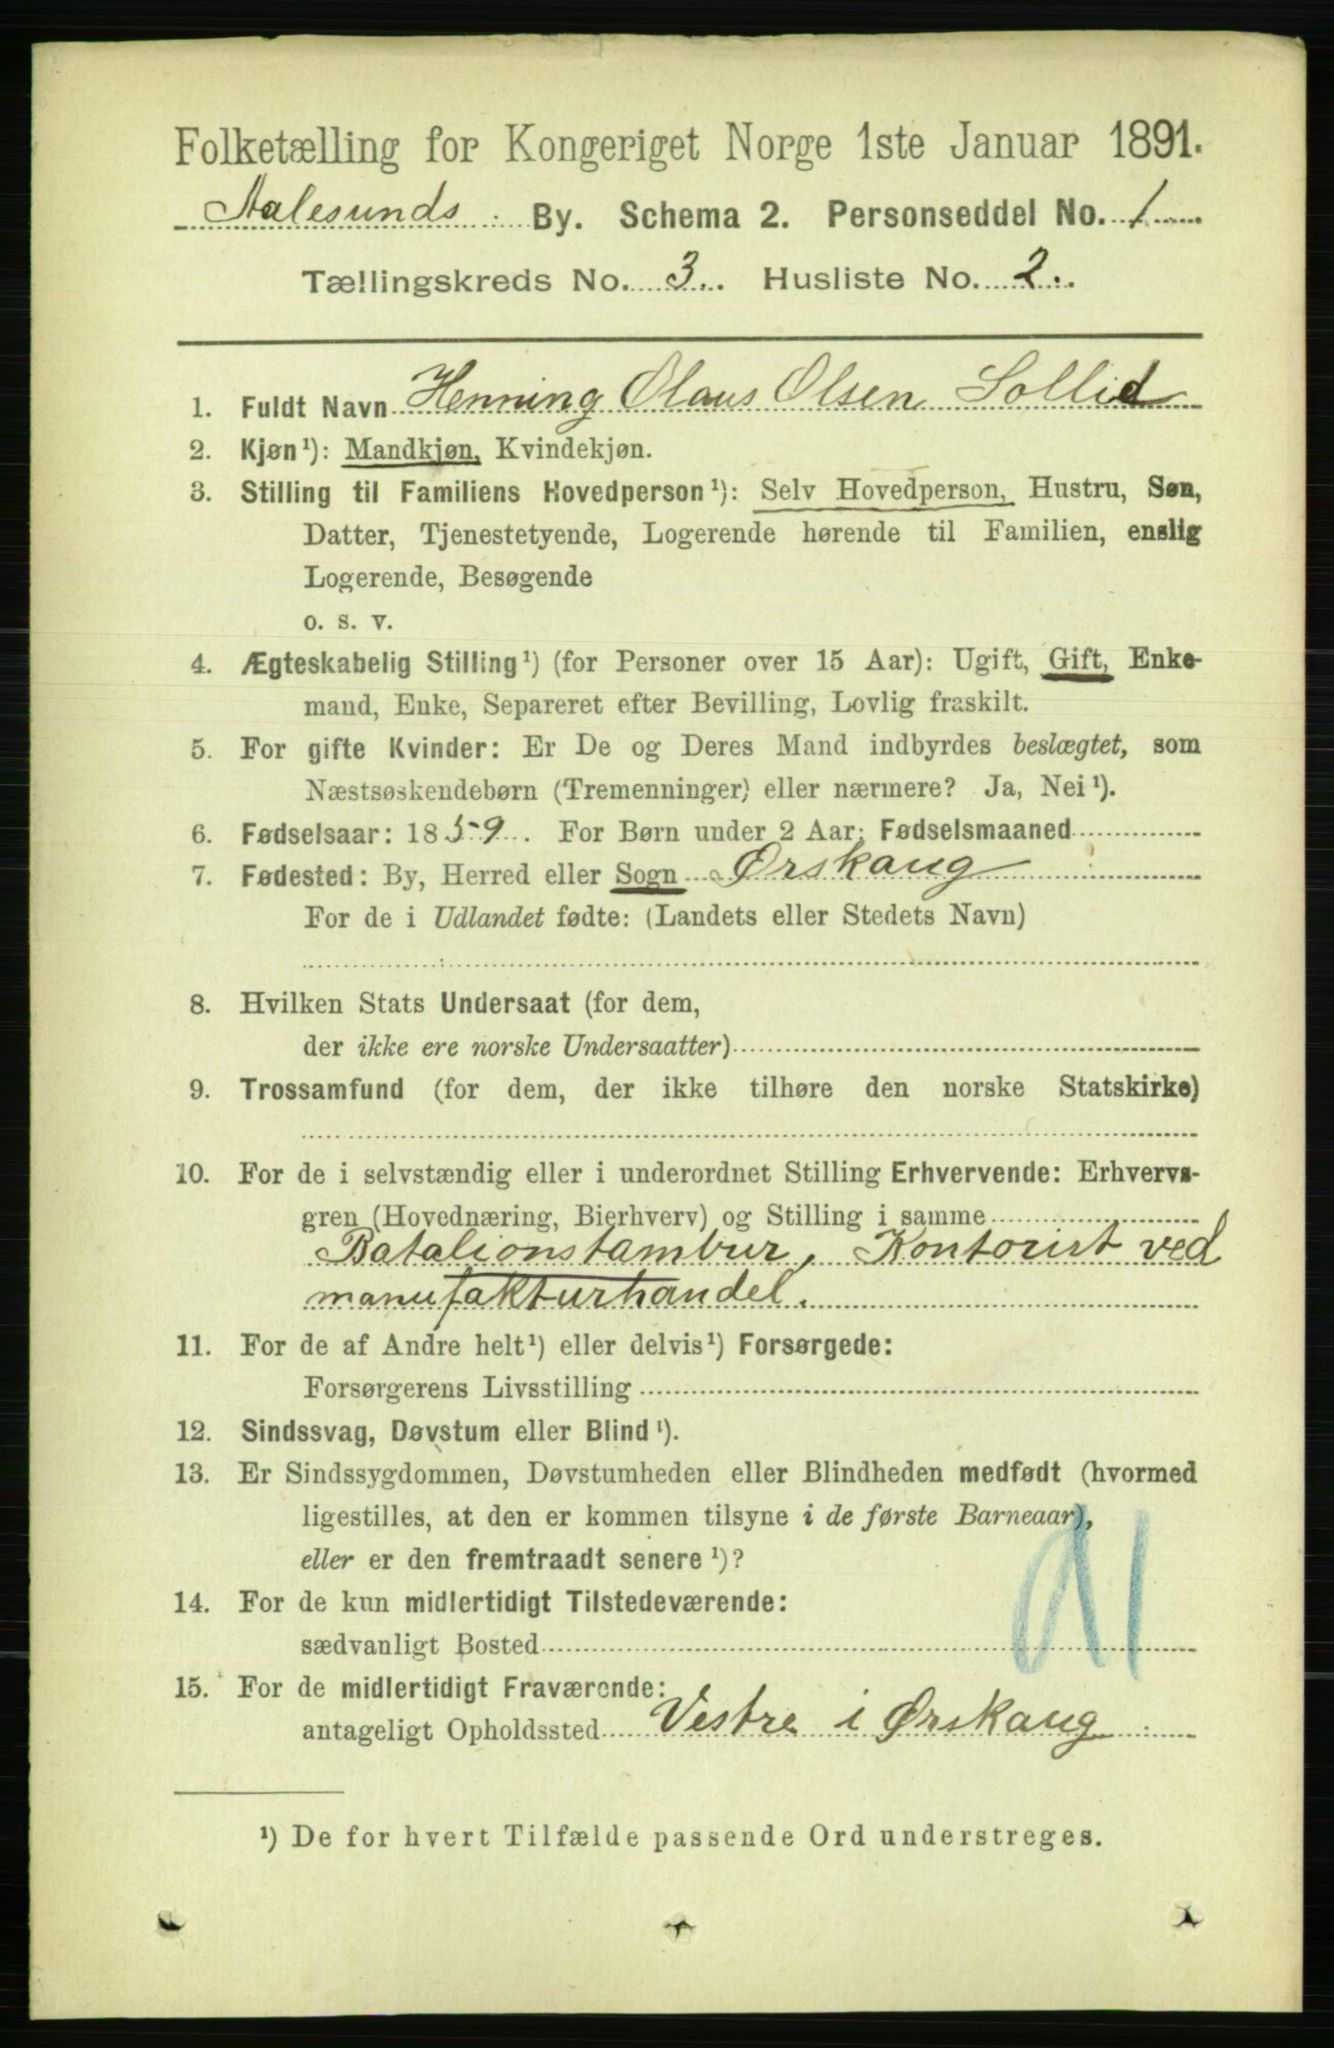 Folketælling for Kongeriget Norge 1ste Januar 1891.
Aalesunds By. Schema 2. Personseddel No. 1
Tællingskreds No. 3. Husliste No. 2.
1. Fuldt Navn Henning Olaus Olsen Sollid
2. Kjøn¹): Mandkjøn, Kvindekjøn.
3. Stilling til Familiens Hovedperson¹): Selv Hovedperson, Hustru, Søn,
Datter, Tjenestetyende, Logerende hørende til Familien, enslig
Logerende, Besøgende
o. s. v.
4. Ægteskabelig Stilling¹) (for Personer over 15 Aar): Ugift, Gift, Enke-
mand, Enke, Separeret efter Bevilling, Lovlig fraskilt.
5. For gifte Kvinder: Er De og Deres Mand indbyrdes beslægtet, som
Næstsøskendebørn (Tremenninger) eller nærmere? Ja, Nei¹).
6. Fødselsaar: 1859. For Børn under 2 Aar: Fødselsmaaned
7. Fødested: By, Herred eller Sogn Ørskaug
For de i Udlandet fødte: (Landets eller Stedets Navn)
8. Hvilken Stats Undersaat (for dem,
der ikke ere norske Undersaatter)
9. Trossamfund (for dem, der ikke tilhøre den norske Statskirke)
10. For de i selvstændig eller i underordnet Stilling Erhvervende: Erhvervs-
gren (Hovednæring, Bierhverv) og Stilling i samme
Batalionstambur, Kontorist ved
manufakturhandel.
11. For de af Andre helt¹) eller delvis¹) Forsørgede:
Forsørgerens Livsstilling
12. Sindssvag, Døvstum eller Blind¹).
13. Er Sindssygdommen, Døvstumheden eller Blindheden medfødt (hvormed
ligestilles, at den er kommen tilsyne i de første Barneaar),
eller er den fremtraadt senere¹)?
14. For de kun midlertidigt Tilstedeværende:
sædvanligt Bosted
15. For de midlertidigt Fraværende:
antageligt Opholdssted Vestre i Ørskaug
¹) De for hvert Tilfælde passende Ord understreges.